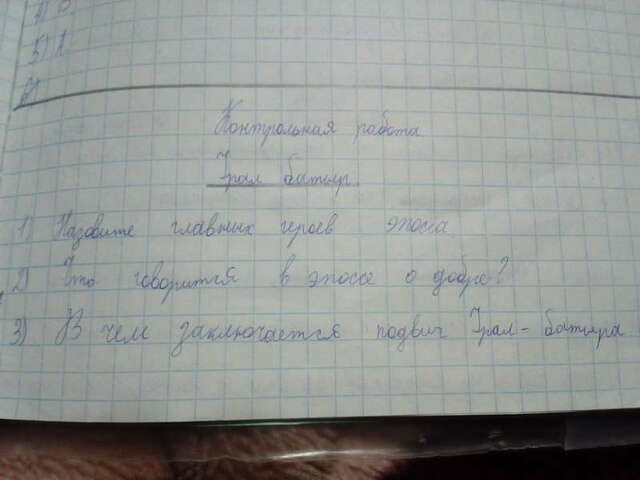 5) А
Контрольная работа
Урал батыр.
1) Назовите главных героев эпоса
2) Что говорится в эпосе о добре?
3) В чем заключается подвиг Урал-батыра